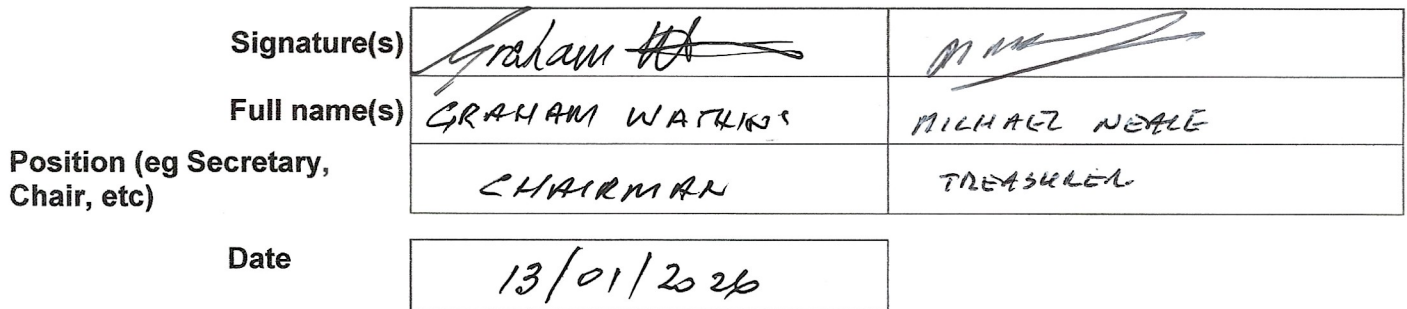 Signature(s) Graham
Full name(s) GRAHAM WATKINS MICHAEL NEALE
Position (eg Secretary,
Chair, etc) CHAIRMAN TREASURER
Date 13/01/2026